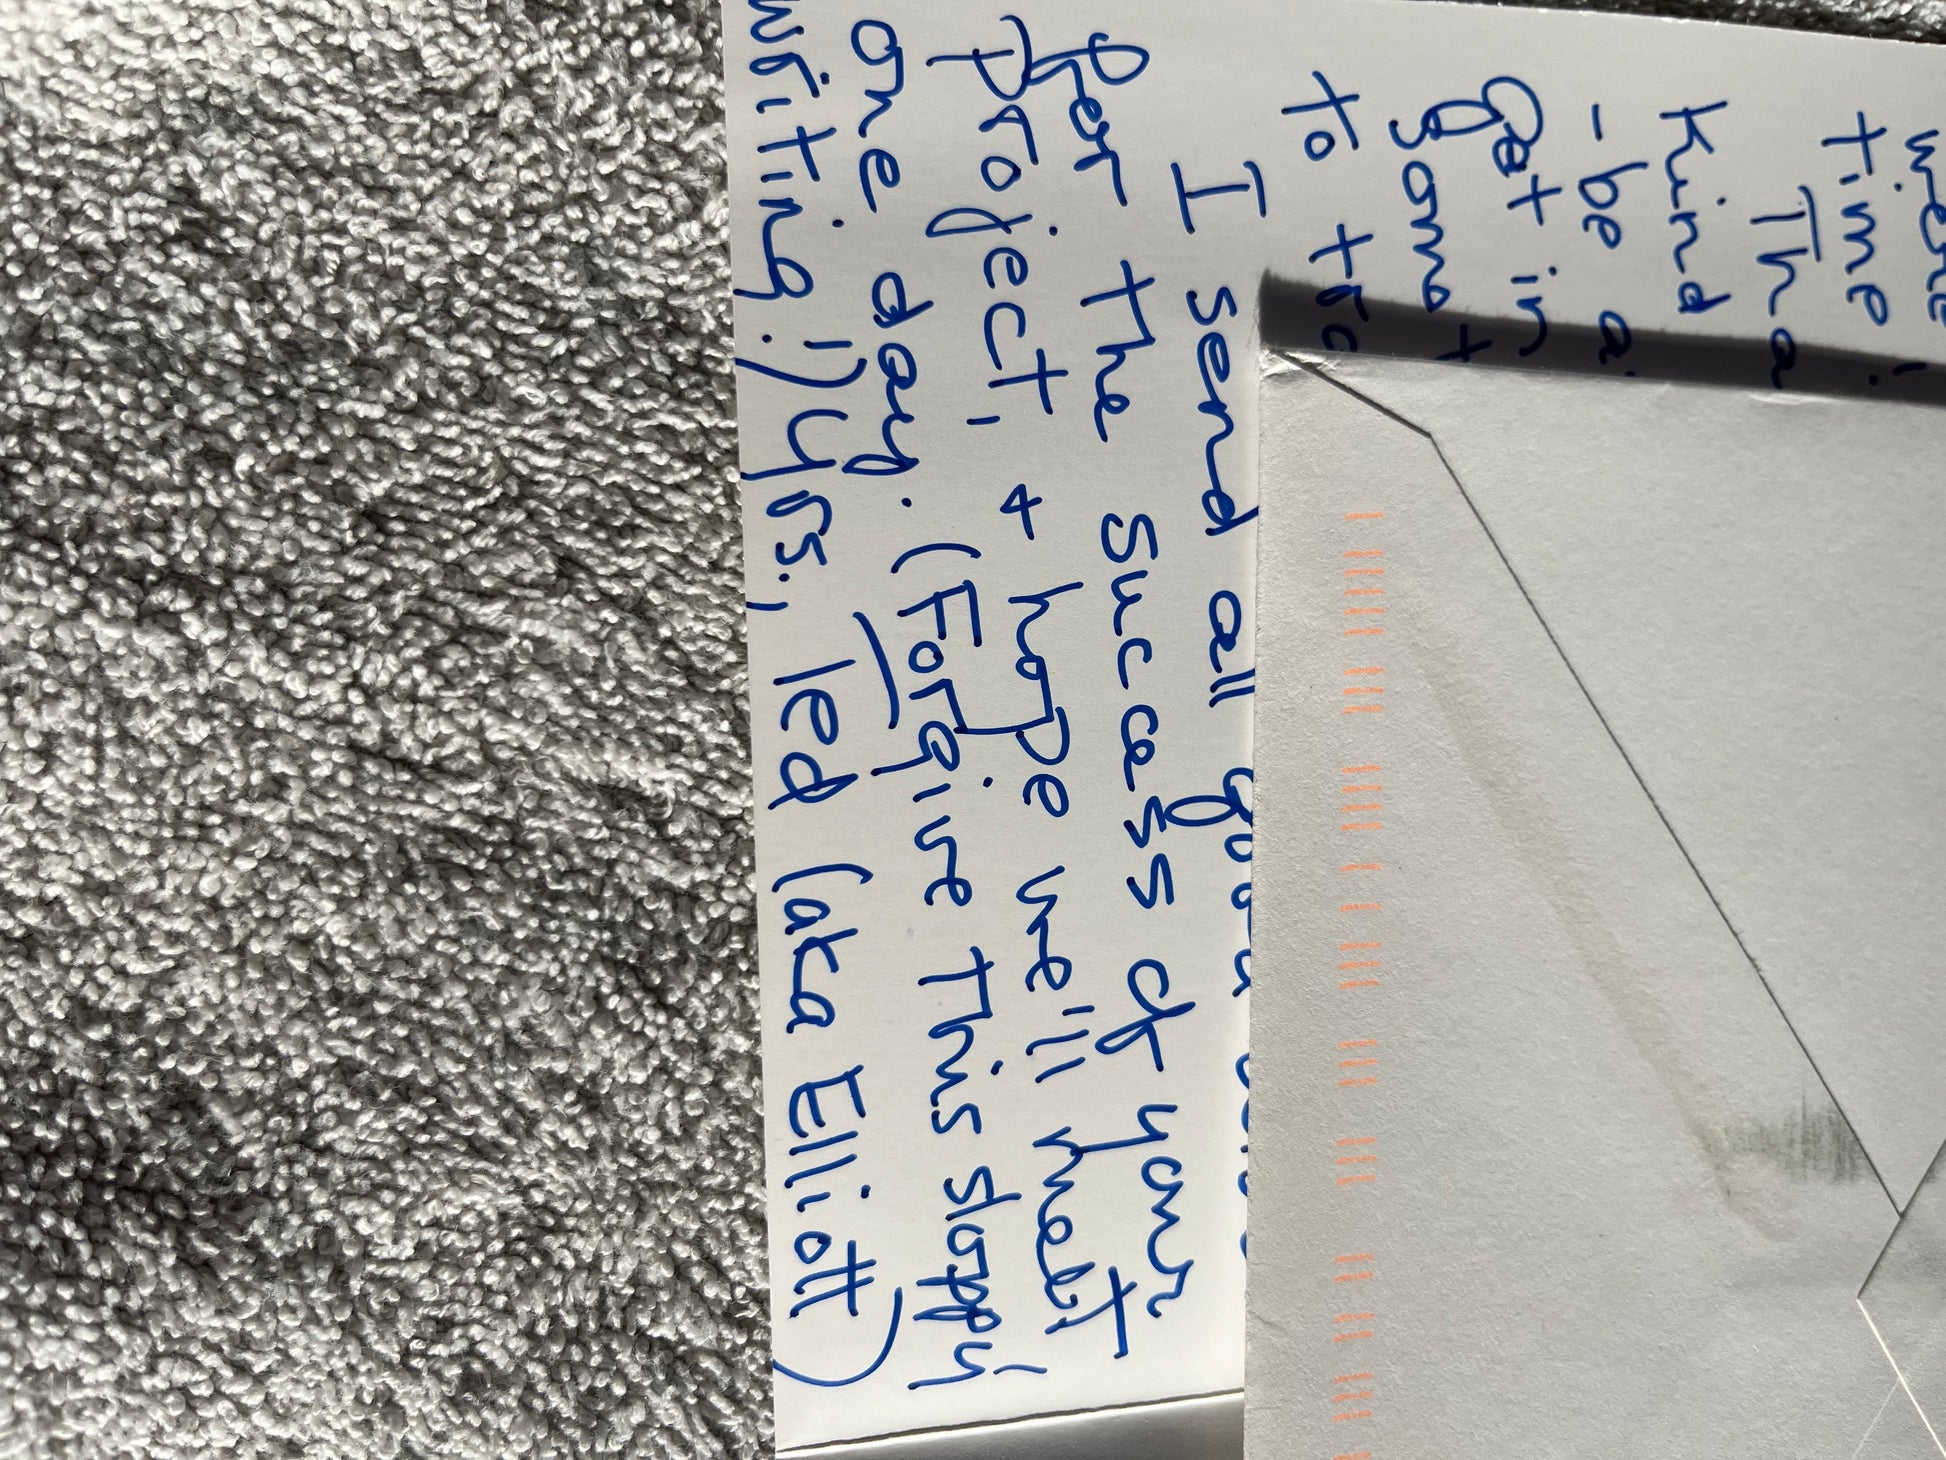 were
time i
Tha
Kind
- be a
get in
somet
to tra
I send all good
for the success of your
project, + hope we'll meet
one day. (Forgive This sloppy
writing!) Yrs., Ted (aka Elliott)